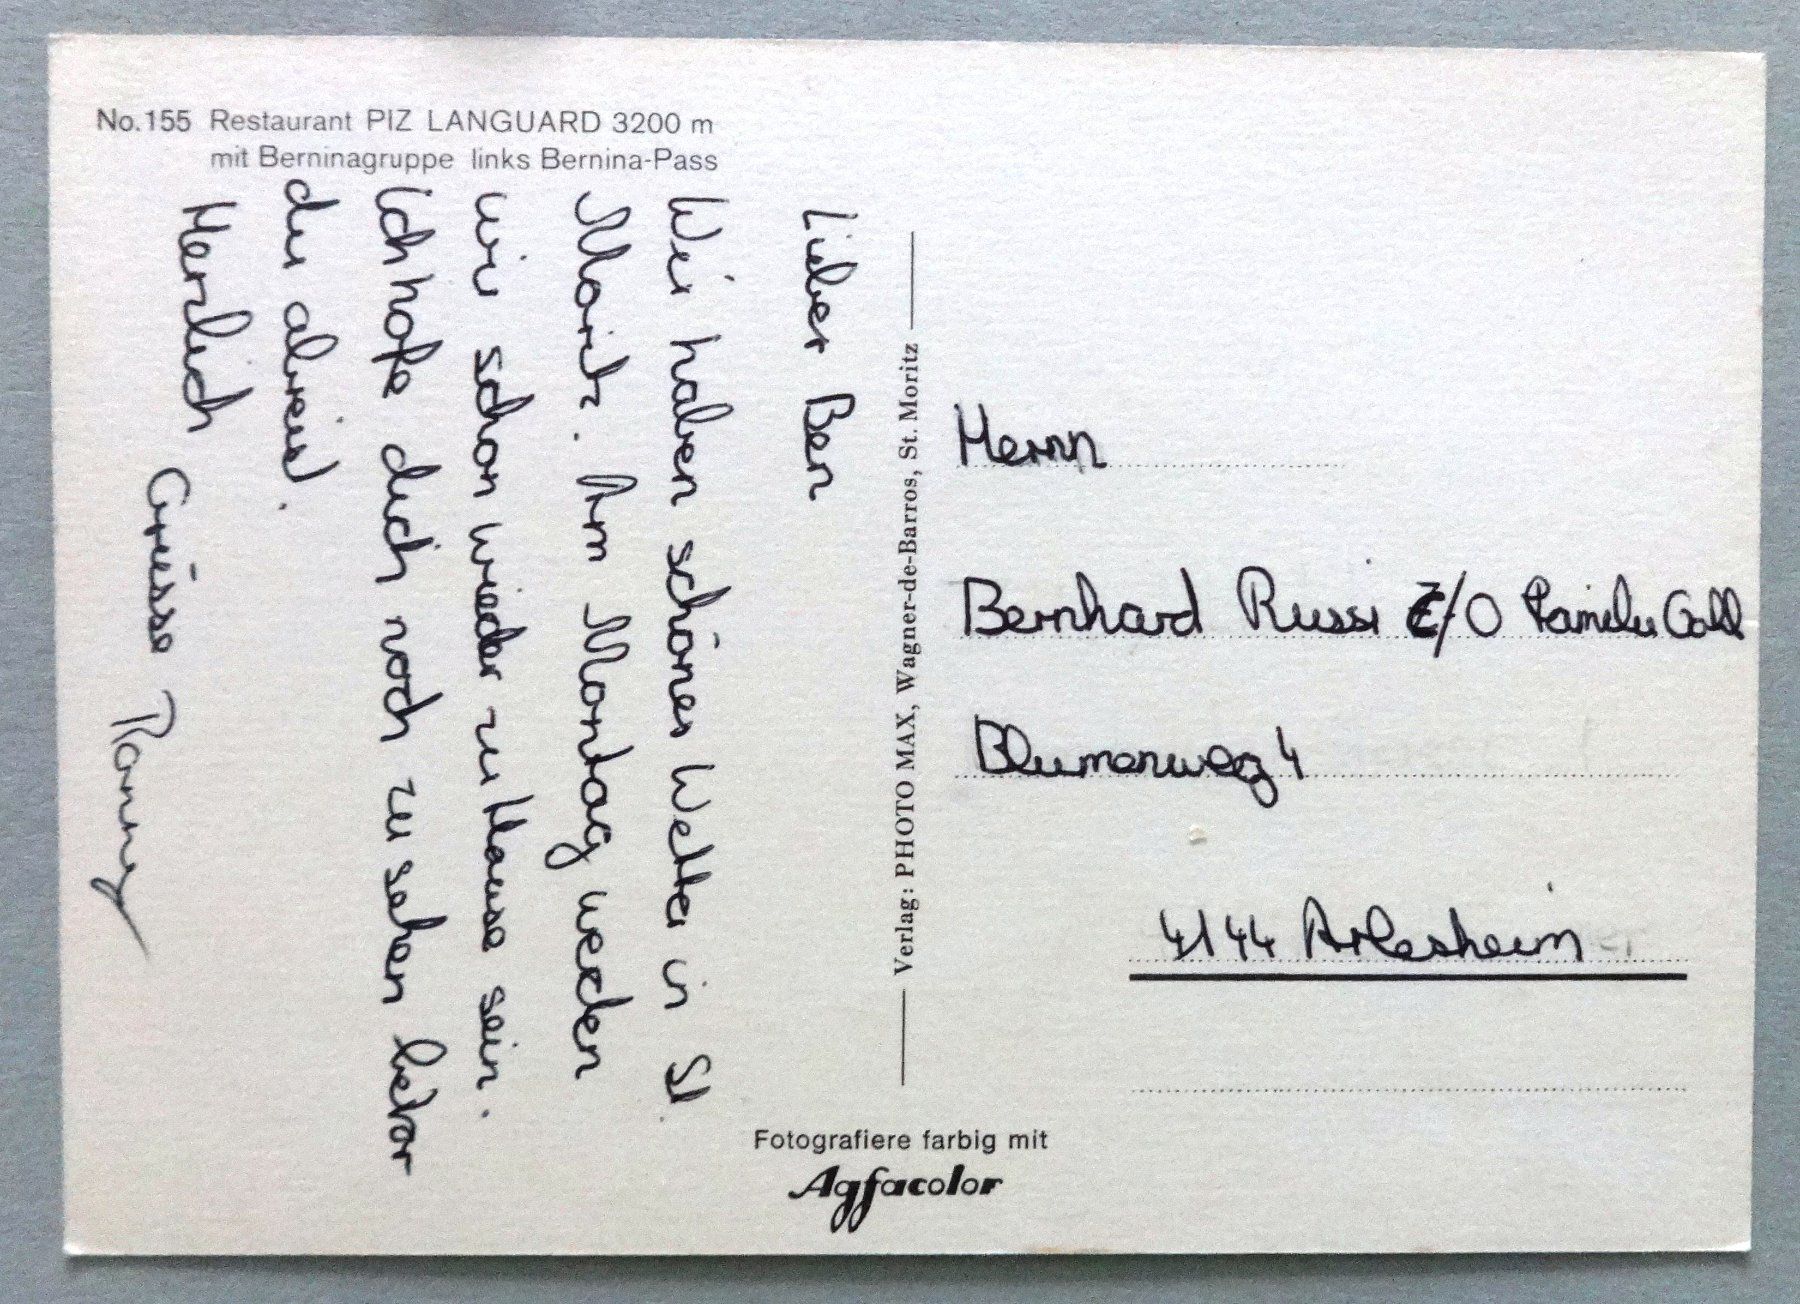 No.155 Restaurant PIZ LANGUARD 3200 m
mit Berninagruppe links Bernina-Pass
Lieber Ben
Wir haben schönes Wetter in St
Moritz. Am Montag werden
wir schon wieder zu Hause sein.
Ich hofe dich noch zu sehen bevor
du abreist.
Herzlich Grüsse Ronny
Verlag: PHOTO MAX, Wagner-de-Barros, St. Moritz
Herrn
Bernhard Russi C/O Familie Gall
Blumenweg 4
4144 Arlesheim
Fotografiere farbig mit
Agfacolor